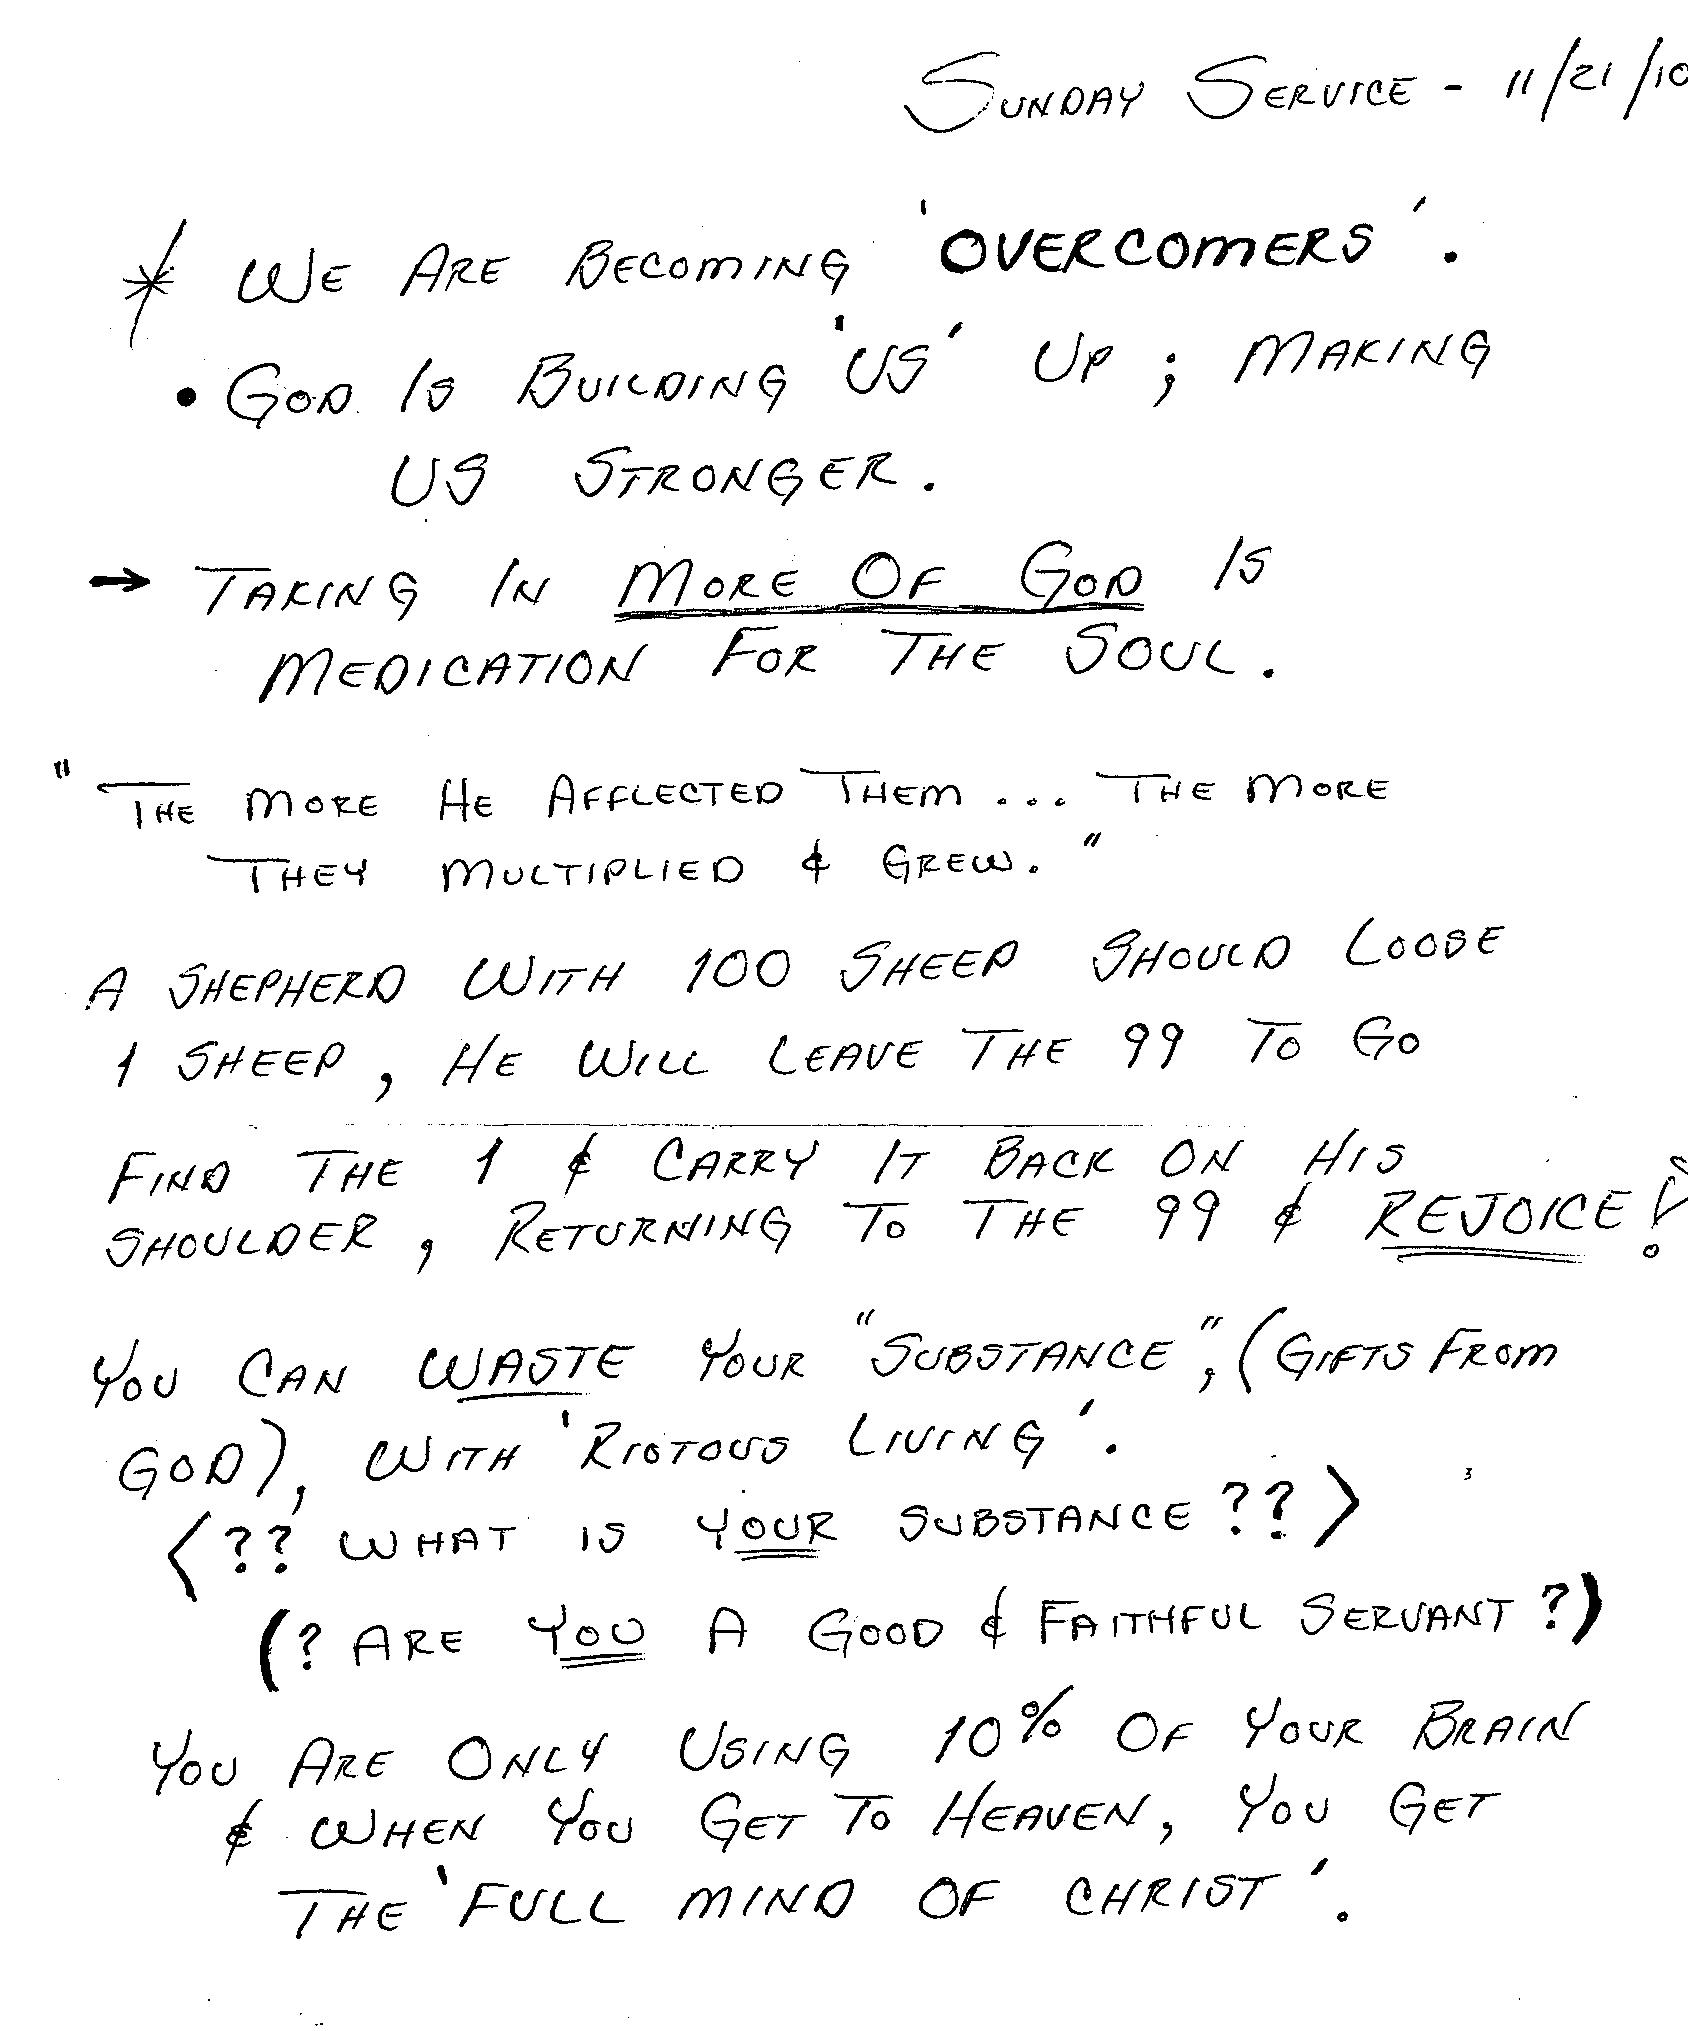 Sunday Service - 11/21/10
* We Are Becoming 'OVERCOMERS'.
• God Is Building 'US' Up ; Making
US Stronger.
→ Taking In More Of God Is
Medication For The Soul.
"The More He Afflected Them ... The More
They Multiplied & Grew."
A Shepherd With 100 Sheep Should Loose
1 Sheep, He Will Leave The 99 To Go
Find The 1 & Carry It Back On His
Shoulder, Returning To The 99 & REJOICE!
You Can WASTE Your "Substance", (Gifts From
God), With 'Riotous Living'.
<?? What is YOUR Substance ??>
(? Are YOU A Good & Faithful Servant ?)
You Are Only Using 10% Of Your Brain
& When You Get To Heaven, You Get
The 'Full Mind Of Christ'.